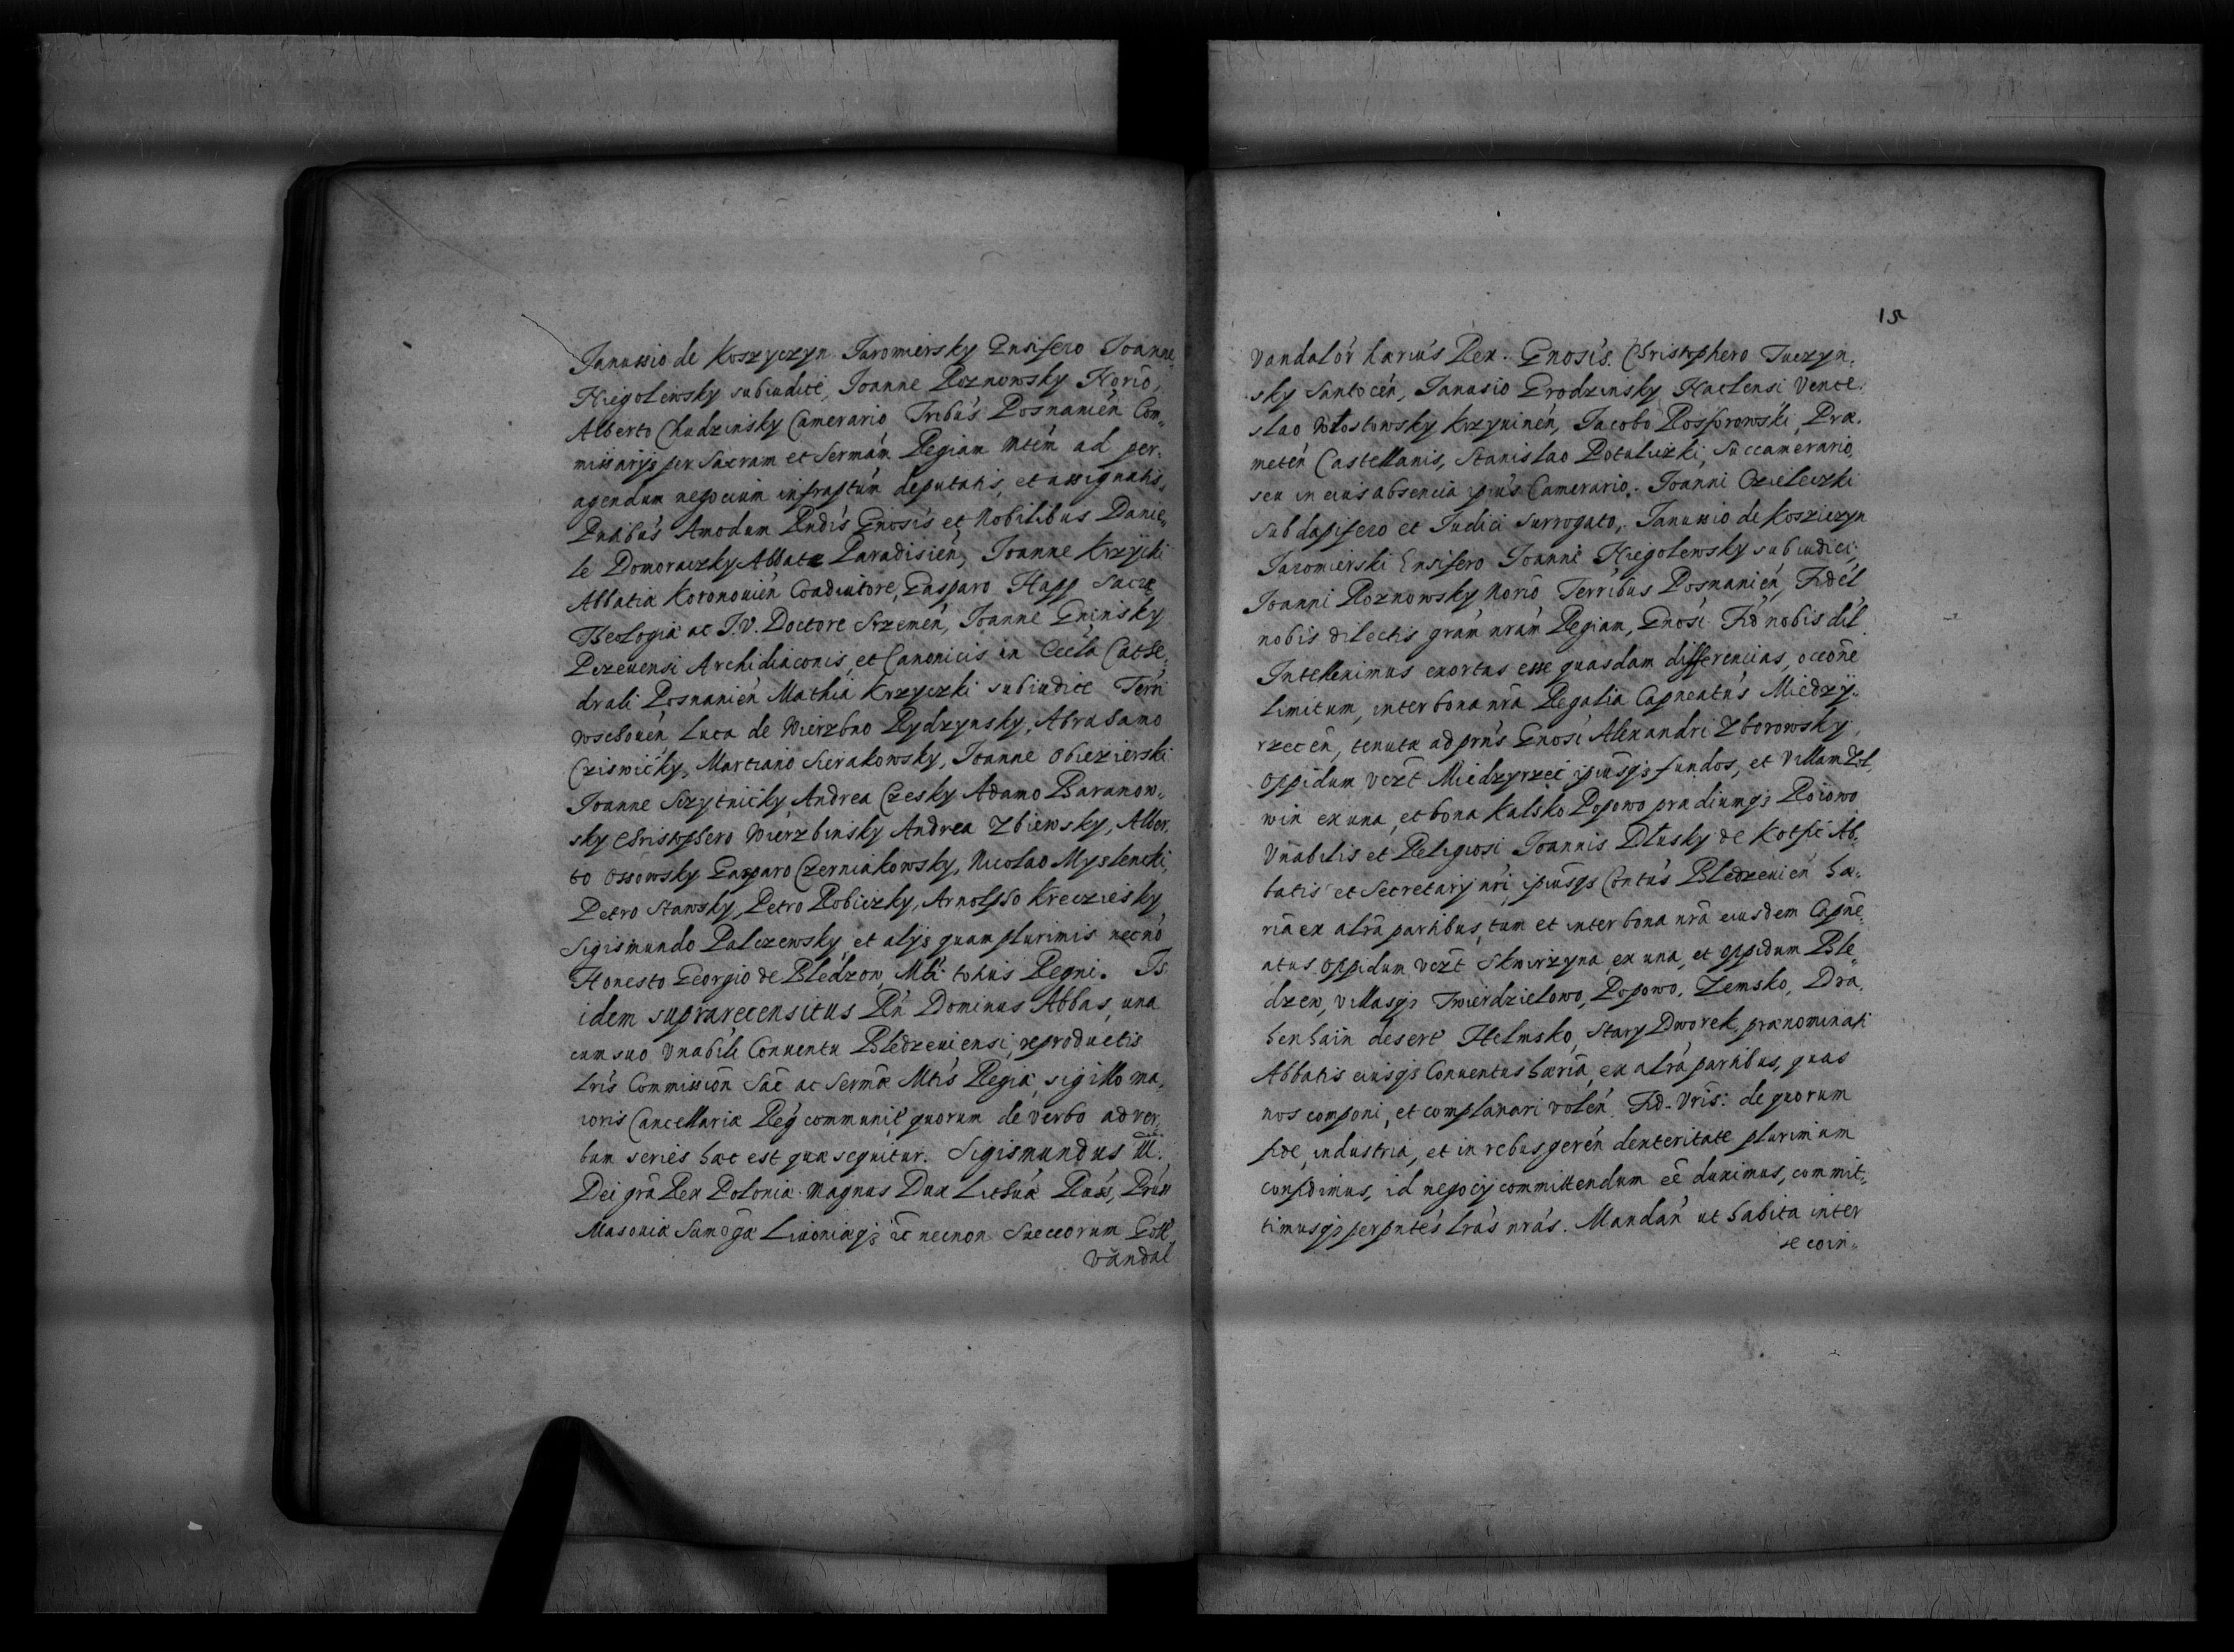 Janussio de Koszyczyn Jaromiersky Ensifero Joanne
Niegolewsky subiudice, Joanne Roznowsky Norio,
Alberto Chudzinsky Camerario Tribus Posnanien Com„
missarijs per Sacram et Sermam Regiam Mtem ad per„
agendum negocium infraptum deputatis, et assignatis,
Pntibus Amodum Rndis Gnosis et Nobilibus Danie„
le Domoraczky Abbate Paradisien, Joanne Krzycki
Abbatiæ Koronouien Coadiutore, Gasparo Happ Sacræ
Theologiæ ac J.V. Doctore Srzemen, Joanne Gninsky
Pczeuensi Archidiaconis, et Canonicis in Eccla Cathe„
drali Posnanien Mathia Krzyczki subiudice Terri
Wschouen Luca de Wierzbno Rydzynsky, Abrahamo
Cziswicky, Martiano Sierakowsky, Joanne Obiezierski
Joanne Sczytnicky Andrea Czesky Adamo Baranow„
sky Christophero Wierzbinsky Andrea Zbiewsky, Alber„
to Ossowsky Gasparo Czerniakowsky, Nicolao Myslencki,
Petro Stawsky, Petro Robiczky, Arnolpho Krecziesky
Sigismundo Palczewsky, et alijs quam plurimis necno
Honesto Georgio de Bledzow, Mli totius Regni. Is
idem suprarecensitus Rn Dominus Abbas, una
cum suo Vnabili Conuentu Bledzeuiensi, reproductis
lris Commission Sae ac Sermæ Mtis Regiæ, sigillo ma„
ioris Cancellariæ Reg communit quorum de verbo ad ver„
bum series hæc est quæ sequitur. Sigismundus III.
Dei gra Rex Poloniæ Magnus Dux Lithuæ Russ, Pruss
Masouiæ Samogæ Liuoniæq; etc necnon Sueccorum Gott
Vandal
15
Vandalor hærius Rex. Gnosis. Christophero Tuczyn„
sky Santocen, Janusio Grodzinsky Naclensi Vence„
slao Włostowsky Krzyuinen, Jacobo Rosporowski Præ„
meten Castellanis, Stanislao Potulizki, Succamerario,
seu in eius absencia ipius Camerario. Joanni Czieleczki
Subdapifero et Judici Surrogato, Janussio de Kosziczyn
Jaromierski Ensifero Joanni Niegolewsky subiudici,
Joanni Roznowsky Norio Terribus Posnanien, Fidel
nobis dilectis gram nram Regiam, Gnosi Fid nobis dil
Intelleximus exortas esse quasdam differencias, occone
limitum, inter bona nra Regalia Capneatus Miedzy„
rzecen, tenutæ ad prns Gnosi Alexandri Zborowsky,
Oppidum vczt Miedzyrzec ipiusq; fundos, et Villam Zol„
win ex una, et bona Kalsko Popowo prædiumq; Roiowo
Vnabilis et Religiosi Joannis Dłusky de Kothe Ab„
batis et Secretarij nri, ipiusq; Contus Bledzeuien hæ„
ria ex altra partibus, tum et inter bona nra eiusdem Capne„
atus Oppidum vczt Skwirzyna, ex una, et Oppidum Ble„
dzew, Villasq; Twierdzielowo, Popowo, Zemsko, Dra„
henhain desert Helmsko, Stary Dworek, prænominati
Abbatis eiusq; Conuentus hæria, ex altra partibus, quas
nos componi, et complanari volen. Fid. Vris: de quorum
fide, industria, et in rebus geren dexteritate plurimum
confidimus, id negocij committendum ee duximus, commit„
timusq; per pntes lras nras. Mandan ut habita inter
se coin„